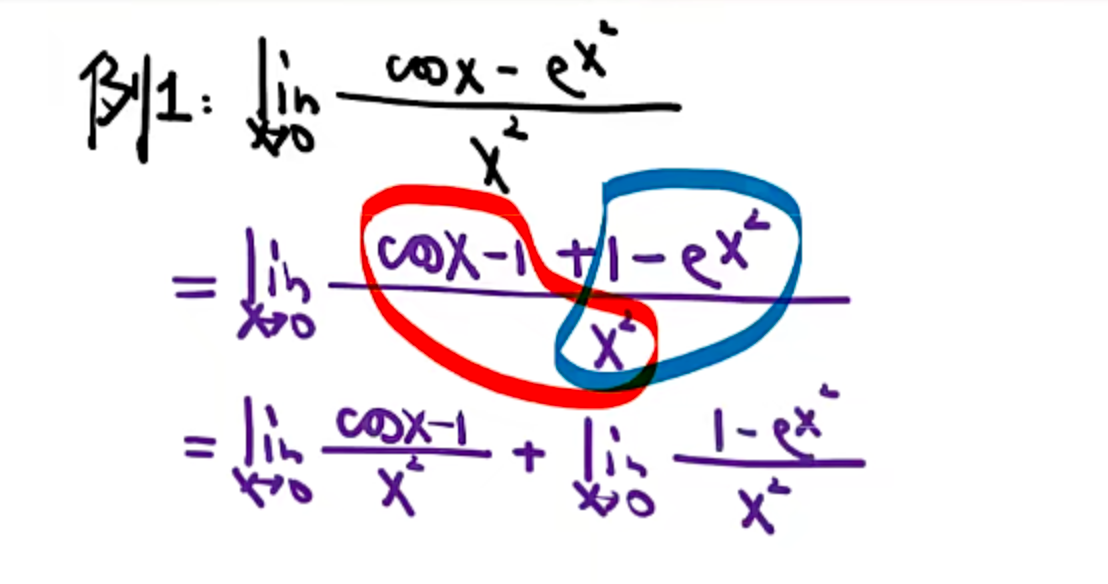 例1: lim x→0 (cosx - e^x²) / x²
= lim x→0 (cosx-1 +1-e^x²) / x²
= lim x→0 (cosx-1) / x² + lim x→0 (1-e^x²) / x²